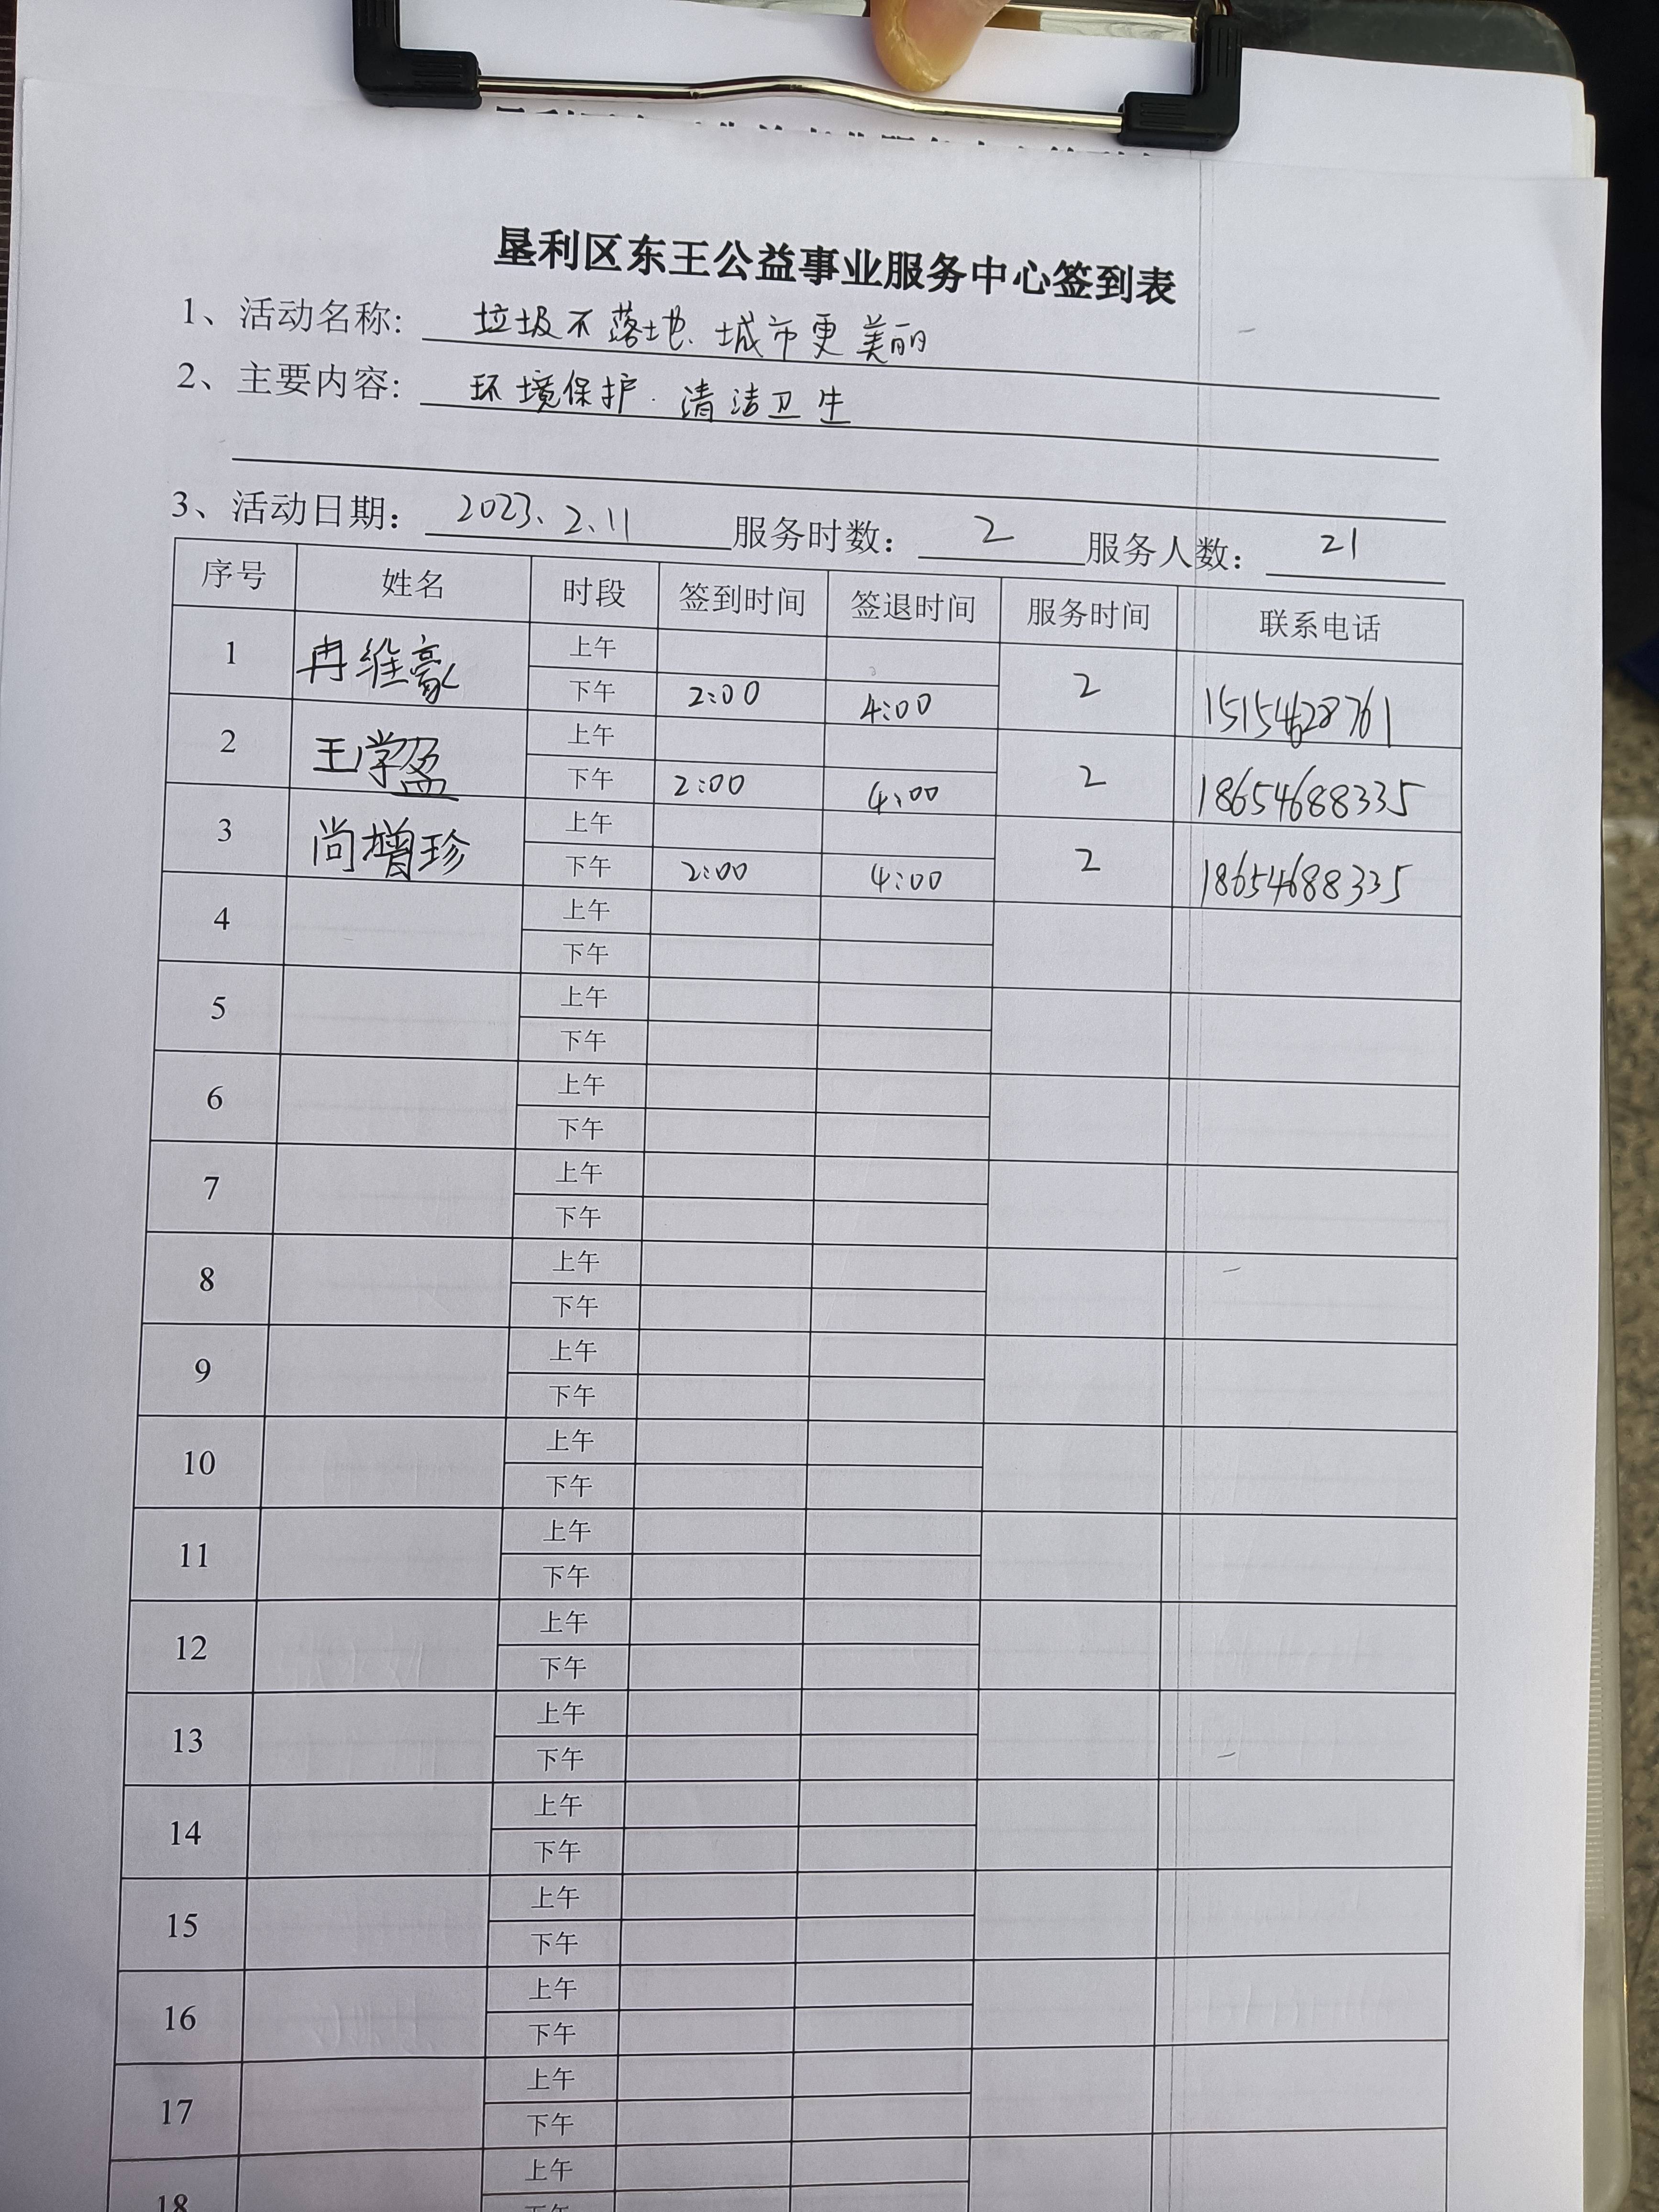 垦利区东王公益事业服务中心签到表
1、活动名称: 垃圾不落地、城市更美丽
2、主要内容: 环境保护.清洁卫生
3、活动日期: 2023、2、11 服务时数: 2 服务人数: 21
序号 姓名 时段 签到时间 签退时间 服务时间 联系电话
1 冉维豪 上午 2
下午 2:00 4:00
2 王学盈 上午 2 18654688335
下午 2:00 4:00
3 尚增珍 上午 2 18654688335
下午 2:00 4:00
4 上午
下午
5 上午
下午
6 上午
下午
7 上午
下午
8 上午
下午
9 上午
下午
10 上午
下午
11 上午
下午
12 上午
下午
13 上午
下午
14 上午
下午
15 上午
下午
16 上午
下午
17 上午
下午
18 上午
下午